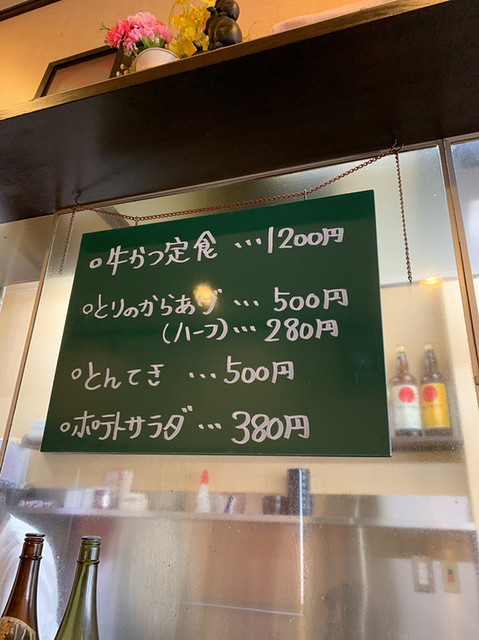 ○牛かつ定食…1200円
○とりのからあげ…500円
(ハーフ)…280円
○とんてき…500円
○ポテトサラダ…380円